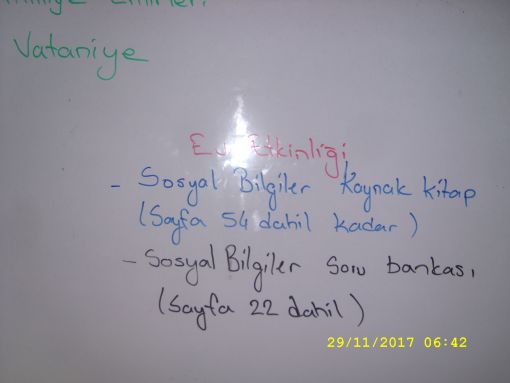 Vataniye
Ev Etkinliği
- Sosyal Bilgiler Kaynak kitap
(Sayfa 54 dahil kadar)
- Sosyal Bilgiler Soru bankası
(Sayfa 22 dahil)
29/11/2017 06:42